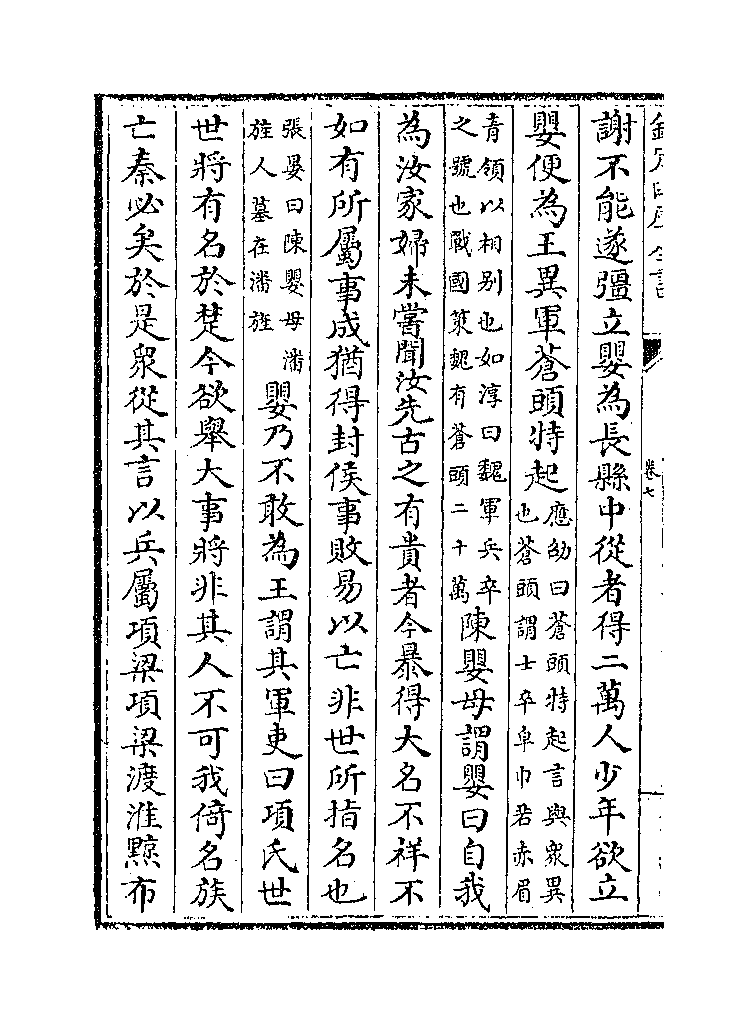 卷七
謝不能遂彊立嬰為長縣中從者得二萬人少年欲立
嬰便為王異軍蒼頭特起
應劭曰蒼頭特起言與衆異
也蒼頭謂士卒皁巾若赤眉
青領以相别也如淳曰魏軍兵卒
之號也戰國策魏有蒼頭二十萬
陳嬰母謂嬰曰自我
為汝家婦未嘗聞汝先古之有貴者今暴得大名不祥不
如有所屬事成猶得封侯事敗易以亡非世所指名也
張晏曰陳嬰母潘
旌人墓在潘旌
嬰乃不敢為王謂其軍吏曰項氏世
世將有名於楚今欲舉大事將非其人不可我倚名族
亡秦必矣於是衆從其言以兵屬項梁項梁渡淮黥布